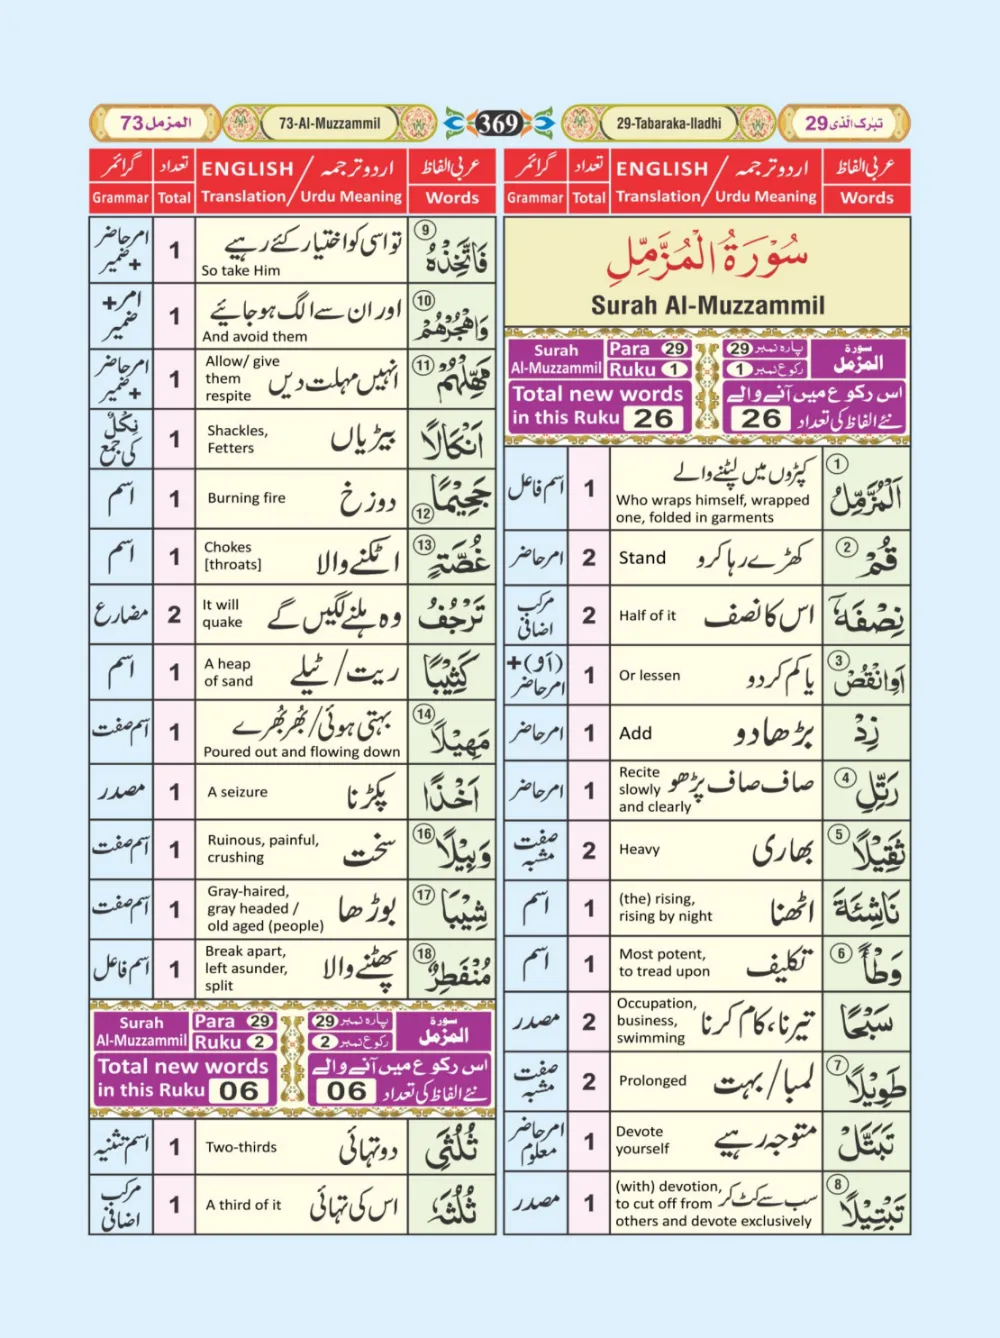 73 المزمل
73-Al-Muzzammil
369
29-Tabaraka-Iladhi
29 تبٰرک الّذی
عربی الفاظ
اردو ترجمہ / ENGLISH
تعداد
گرائمر
Words
Translation / Urdu Meaning
Total
Grammar
سُوْرَةُ الْمُزَّمِّلِ
Surah Al-Muzzammil
Surah
Al-Muzzammil
Para 29
Ruku 1
پارہ نمبر 29
رکوع نمبر 1
سورة
المزمل
Total new words
in this Ruku 26
اس رکوع میں آنے والے
نئے الفاظ کی تعداد 26
1 اَلْمُزَّمِّلُ
کپڑوں میں لپٹنے والے
Who wraps himself, wrapped
one, folded in garments
1
اسم فاعل
2 قُمْ
کھڑے رہا کرو
Stand
2
امر حاضر
نِصْفَهٗۤ
اس کا نصف
Half of it
2
مرکب
اضافی
3 اَوِانْقُصْ
یا کم کر دو
Or lessen
1
(اَوْ)+
امر حاضر
زِدْ
بڑھا دو
Add
1
امر حاضر
4 رَتِّلِ
صاف صاف پڑھو
Recite
slowly
and clearly
1
امر حاضر
5 ثَقِيْلًا
بھاری
Heavy
2
صفت
مشبہ
نَاشِئَةَ
اٹھنا
(the) rising,
rising by night
1
اسم
6 وَطْاً
تکلیف
Most potent,
to tread upon
1
اسم
سَبْحًا
تیرنا، کام کرنا
Occupation,
business,
swimming
2
مصدر
7 طَوِيْلًا
لمبا/ بہت
Prolonged
2
صفت
مشبہ
تَبَتَّلْ
متوجہ رہیے
Devote
yourself
1
امر حاضر
معلوم
8 تَبْتِيْلًا
سب سے کٹ کر
(with) devotion,
to cut off from
others and devote exclusively
1
مصدر
عربی الفاظ
اردو ترجمہ / ENGLISH
تعداد
گرائمر
Words
Translation / Urdu Meaning
Total
Grammar
9 فَاتَّخِذْهُ
تو اسی کو اختیار کئے رہیے
So take Him
1
امر حاضر
+ ضمیر
10 وَاهْجُرْهُمْ
اور ان سے الگ ہو جائیے
And avoid them
1
امر+
ضمیر
11 مَهِّلْهُمْ
انہیں مہلت دیں
Allow/ give
them
respite
1
امر حاضر
+ ضمیر
اَنْكَالًا
بیڑیاں
Shackles,
Fetters
1
نِكْلٌ
کی جمع
12 جَحِيْمًا
دوزخ
Burning fire
1
اسم
13 غُصَّةٍ
اٹکنے والا
Chokes
[throats]
1
اسم
تَرْجُفُ
وہ ہلنے لگیں گے
It will
quake
2
مضارع
كَثِيْبًا
ریت/ ٹیلے
A heap
of sand
1
اسم
14 مَهِيْلًا
بہتی ہوئی/ بُھربُھرے
Poured out and flowing down
1
اسم صفت
اَخْذًا
پکڑنا
A seizure
1
مصدر
16 وَبِيْلًا
سخت
Ruinous, painful,
crushing
1
اسم صفت
17 شِيْبًا
بوڑھا
Gray-haired,
gray headed /
old aged (people)
1
اسم صفت
18 مُنْفَطِرٌ
پھٹنے والا
Break apart,
left asunder,
split
1
اسم فاعل
Surah
Al-Muzzammil
Para 29
Ruku 2
پارہ نمبر 29
رکوع نمبر 2
سورة
المزمل
Total new words
in this Ruku 06
اس رکوع میں آنے والے
نئے الفاظ کی تعداد 06
ثُلُثَيِ
دو تہائی
Two-thirds
1
اسم تثنیہ
ثُلُثَهٗ
اس کی تہائی
A third of it
1
مرکب
اضافی